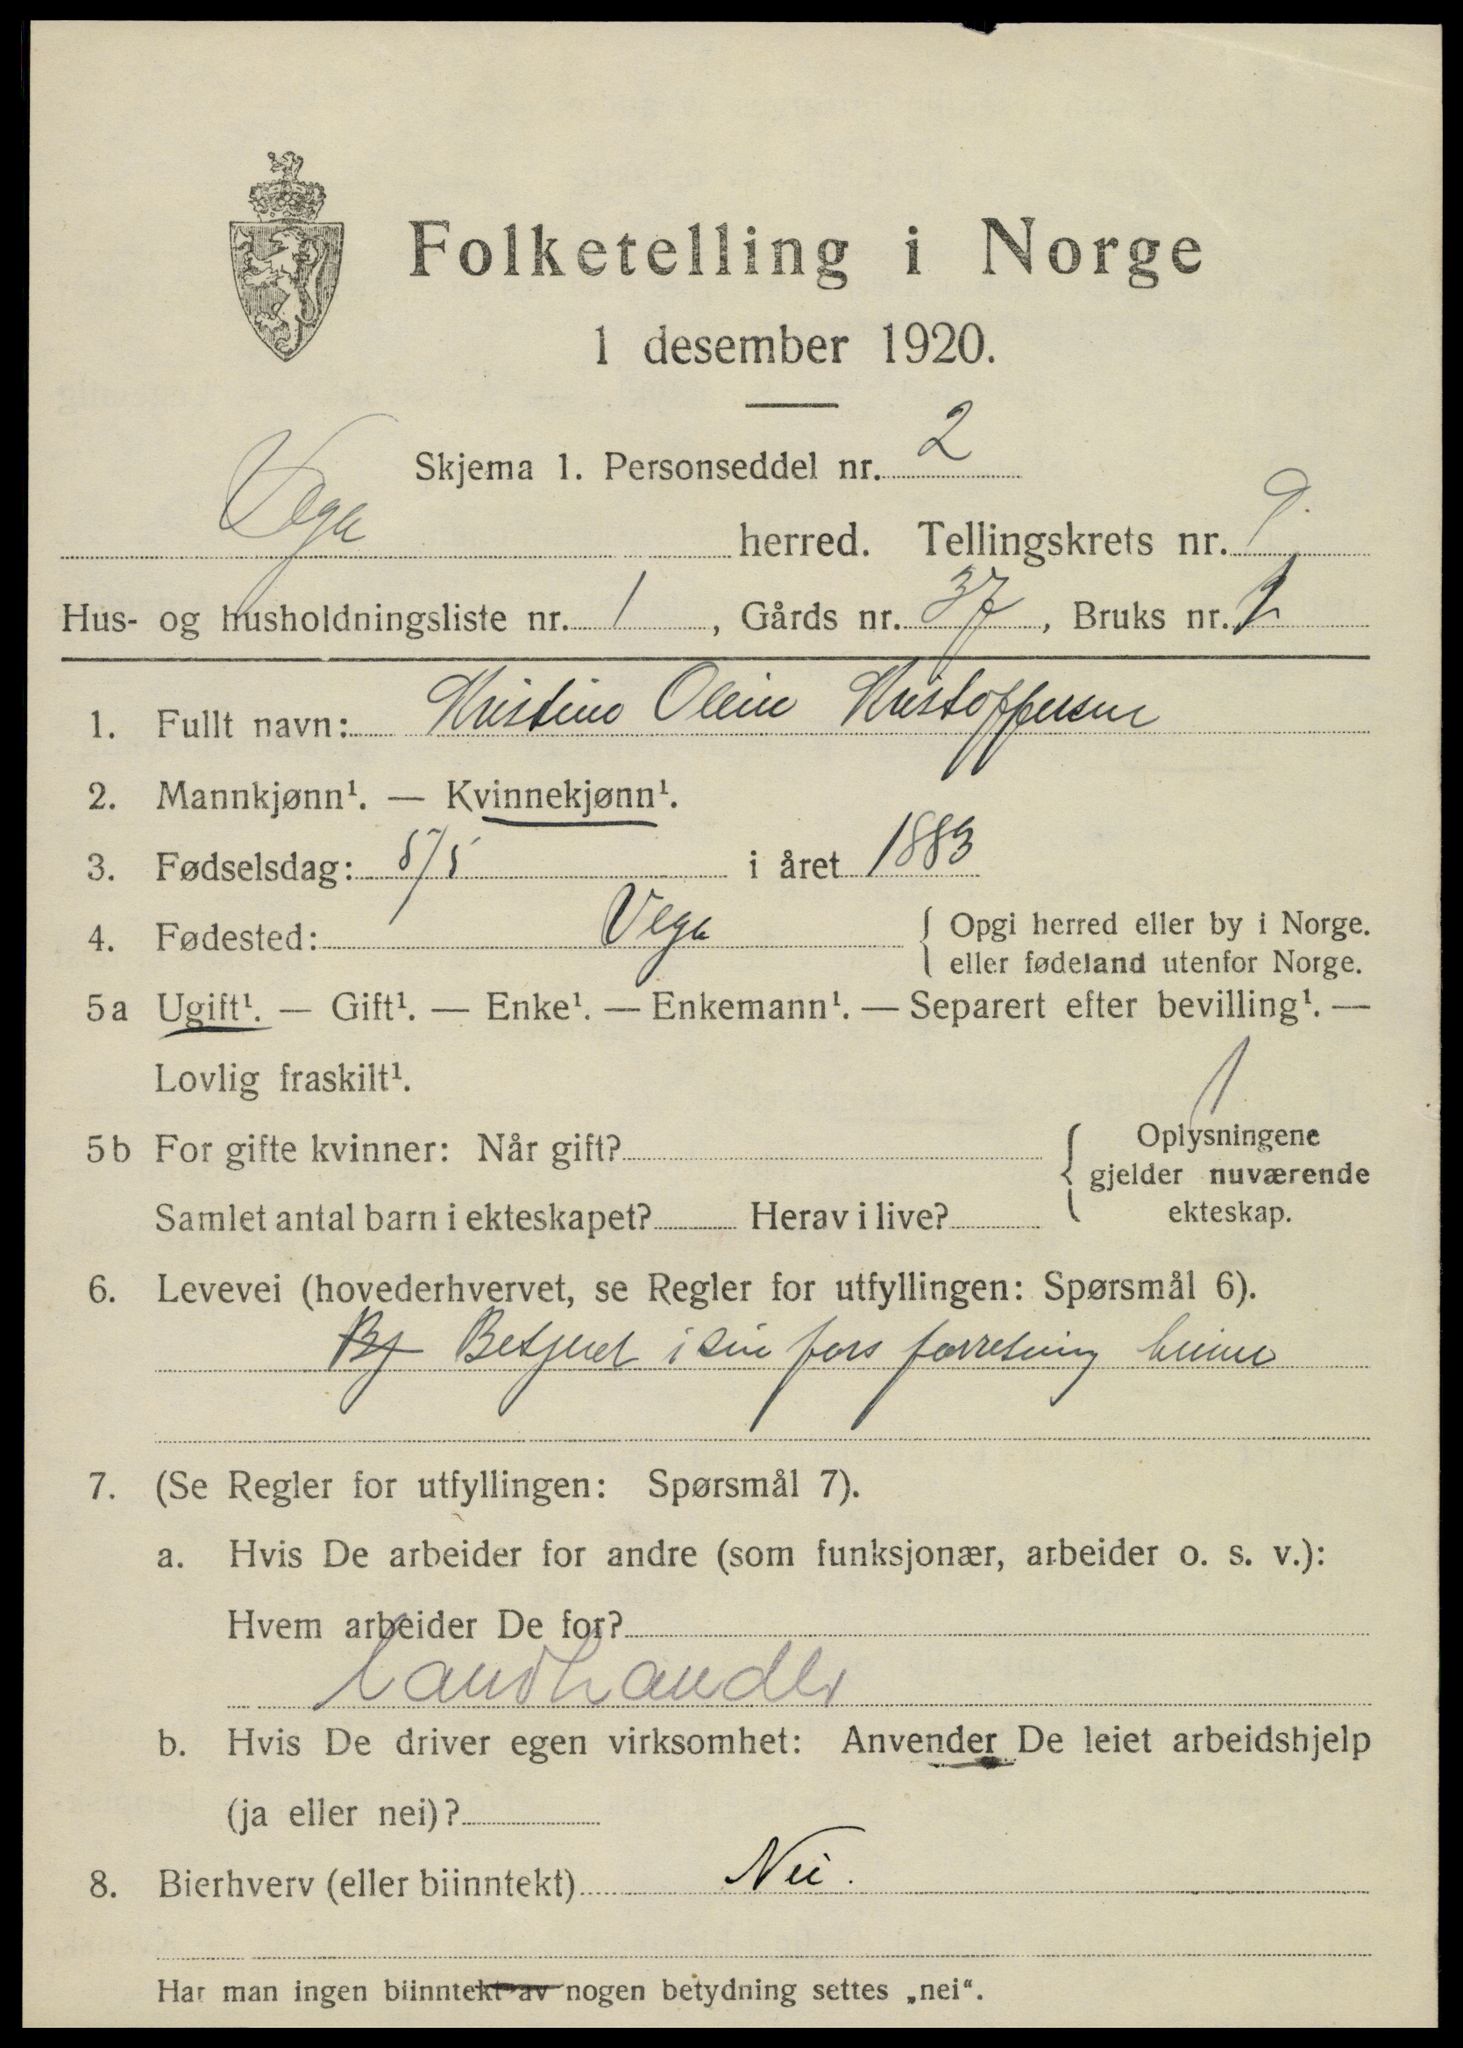 Folketelling i Norge
1 desember 1920.
Skjema 1. Personseddel nr. 2
Vega herred. Tellingskrets nr. 9.
Hus- og husholdningsliste nr. 1, Gårds nr. 37, Bruks nr.
1. Fullt navn: Kristine Oline Kristoffersen
2. Mannkjønn¹. — Kvinnekjønn¹.
3. Fødselsdag: 5/5 i året 1883
4. Fødested: Vega { Opgi herred eller by i Norge.
eller fødeland utenfor Norge.
5a Ugift¹. — Gift¹. — Enke¹. — Enkemann¹. — Separert efter bevilling¹. —
Lovlig fraskilt¹.
5b For gifte kvinner: Når gift? { Oplysningene
gjelder nuværende
Samlet antal barn i ekteskapet? Herav i live? ekteskap.
6. Levevei (hovederhvervet, se Regler for utfyllingen: Spørsmål 6).
Bj Betjent i sin fars forretning hjemme
7. (Se Regler for utfyllingen: Spørsmål 7).
a. Hvis De arbeider for andre (som funksjonær, arbeider o. s. v.):
Hvem arbeider De for?
Landhandler
b. Hvis De driver egen virksomhet: Anvender De leiet arbeidshjelp
(ja eller nei)?
8. Bierhverv (eller biinntekt) Nei.
Har man ingen biinntekt av nogen betydning settes „nei“.